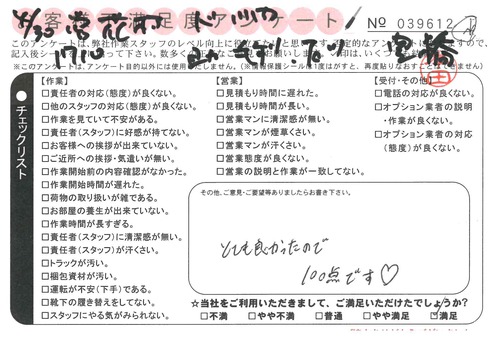 お客様満足度アンケート
No 039612
このアンケートは、弊社作業スタッフのレベル向上に
※このアンケートは、アンケート目的以外には使用いたしません。(※情報保護シールは1度はがすと、再度貼りなおすことはできません)
チェックリスト
【作業】
□責任者の対応(態度)が良くない。
□他のスタッフの対応(態度)が良くない。
□作業を見ていて不安がある。
□責任者(スタッフ)に好感が持てない。
□お客様への挨拶が出来ていない。
□ご近所への挨拶・気遣いが無い。
□作業開始前の内容確認がなかった。
□作業開始時間が遅れた。
□荷物の取り扱いが雑である。
□お部屋の養生が出来ていない。
□作業時間が長すぎる。
□責任者(スタッフ)に清潔感が無い。
□責任者(スタッフ)が汗くさい。
□トラックが汚い。
□梱包資材が汚い。
□運転が不安(下手)である。
□靴下の履き替えをしてない。
□スタッフにやる気がみられない。
【営業】
□見積もり時間に遅れた。
□見積もり時間が長い。
□営業マンに清潔感が無い。
□営業マンが煙草くさい。
□営業マンが汗くさい。
□営業態度が良くない。
□営業の説明と作業が一致してない。
【受付・その他】
□電話の対応が良くない。
□オプション業者の説明
・作業が良くない。
□オプション業者の対応
(態度)が良くない。
その他、ご意見・ご要望等ありましたらお書き下さい。
とても良かったので
100点です♡
☆当社をご利用いただきまして、ご満足いただけたでしょうか?
□不満 □やや不満 □普通 □やや満足 ☑満足